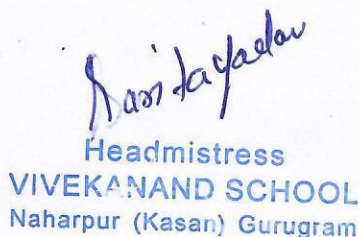 Sarita Yadav
Headmistress
VIVEKANAND SCHOOL
Naharpur (Kasan) Gurugram